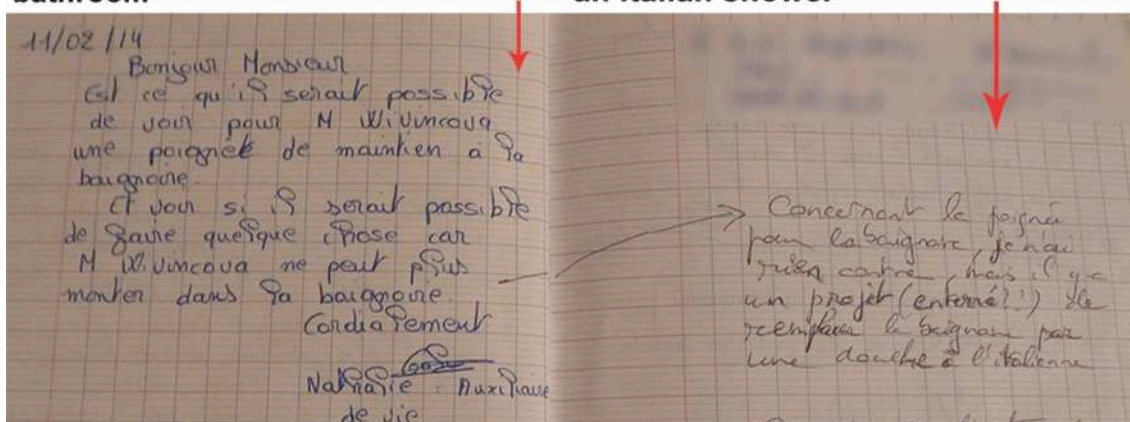 11/02/14
Bonjour Monsieur
Est ce qu'il serait possible
de voir pour M Wivincova
une poignée de maintien à la
baignoire.
Et voir si il serait possible
de faire quelque chose car
M Wivincova ne peut plus
monter dans la baignoire.
Cordialement
Nathalie : Auxiliaire
de vie
an Italian shower
Concernant la poignée
pour la baignoire, je n'ai
rien contre, mais il y a
un projet (enterré?!) de
remplacer la baignoire par
une douche à l'italienne